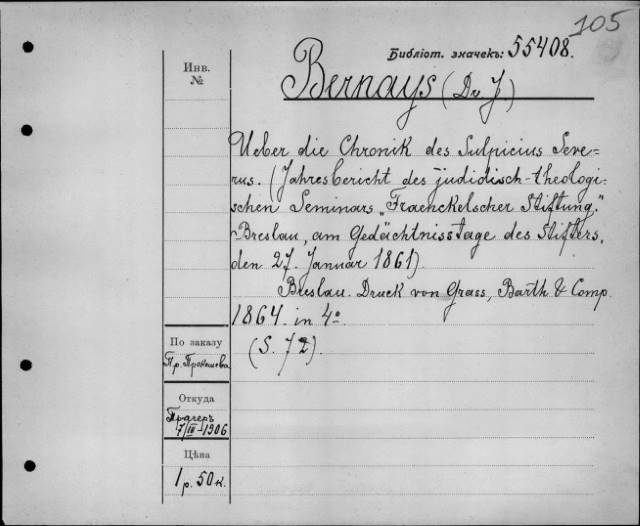 105
Библіот. значекъ: 55408.
Инв.
№
Bernays (Dr J.)
Ueber die Chronik des Sulpicius Seve=
rus. (Jahresbericht des judidisch-theologi-
schen Seminars „Fraenckelscher Stiftung."
Breslau, am Gedächtnisstage des Stifters,
den 27. Januar 1861)
Breslau. Druck von Grass, Barth & Comp
1864. in 4°.
(S. 72).
По заказу
Пр.
Откуда
Прагеръ
7/III-1906
Цѣна
1 р. 50 к.